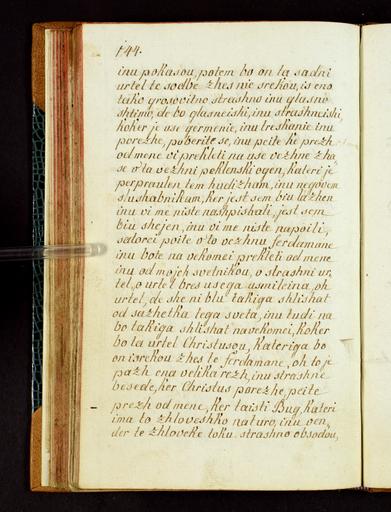 144.
inu pokasou, potem bo on ta sadni
urtel te sodbe zhes nie srekou, is eno
tako grosovitno strashno inu glasno
shtimo, de bo glasneishi, inu strashneishi,
koker je use germenie, inu treskanie inu
porezhe, poberite se, inu peite ke prezh
od mene vi prekleti na use vezhne zha,
se v'ta vezhni peklenski ogen, kateri je
perpraulen tem hudizham, inu negovem
slushabnikam, ker jest sem biu lazhen
inu vi me niste nashpishali, jest sem
biu shejen, inu vi me niste napoili,
satorei poite v'to vezhnu ferdamane
inu bote na vekomei prekleti od mene
inu od mojeh svetnikou, o strashni ur,
tel, o urtel bres usega usmileina, oh
urtel, de she ni blu takiga shlishat
od sazhetka tega sveta, inu tudi na
bo takiga shlishat navekomei, koker
bo ta urtel Christusou, kateriga bo
on isrekou zhes te ferdamane, oh to je
pazh ena velika rezh, inu strashne
besede, ker Christus porezhe, peite
prezh od mene, ker taisti Bug, kateri
ima to zhloveshko naturo, inu ven,
der te zhloveke toku strashno obsodou,